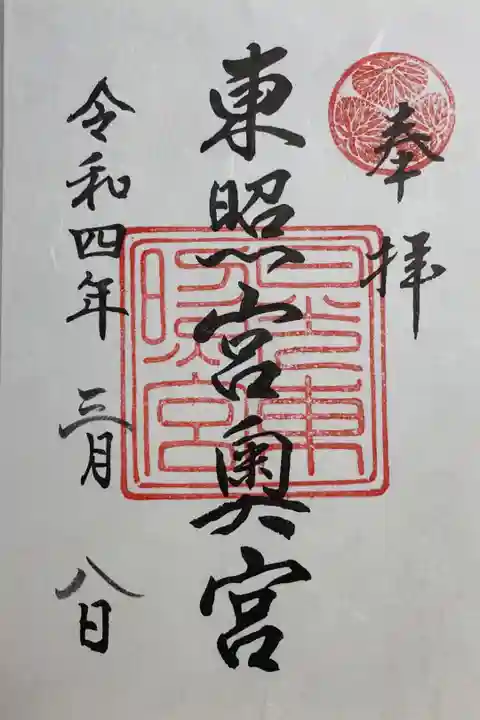 奉拝
東照宮奥宮
令和四年三月八日